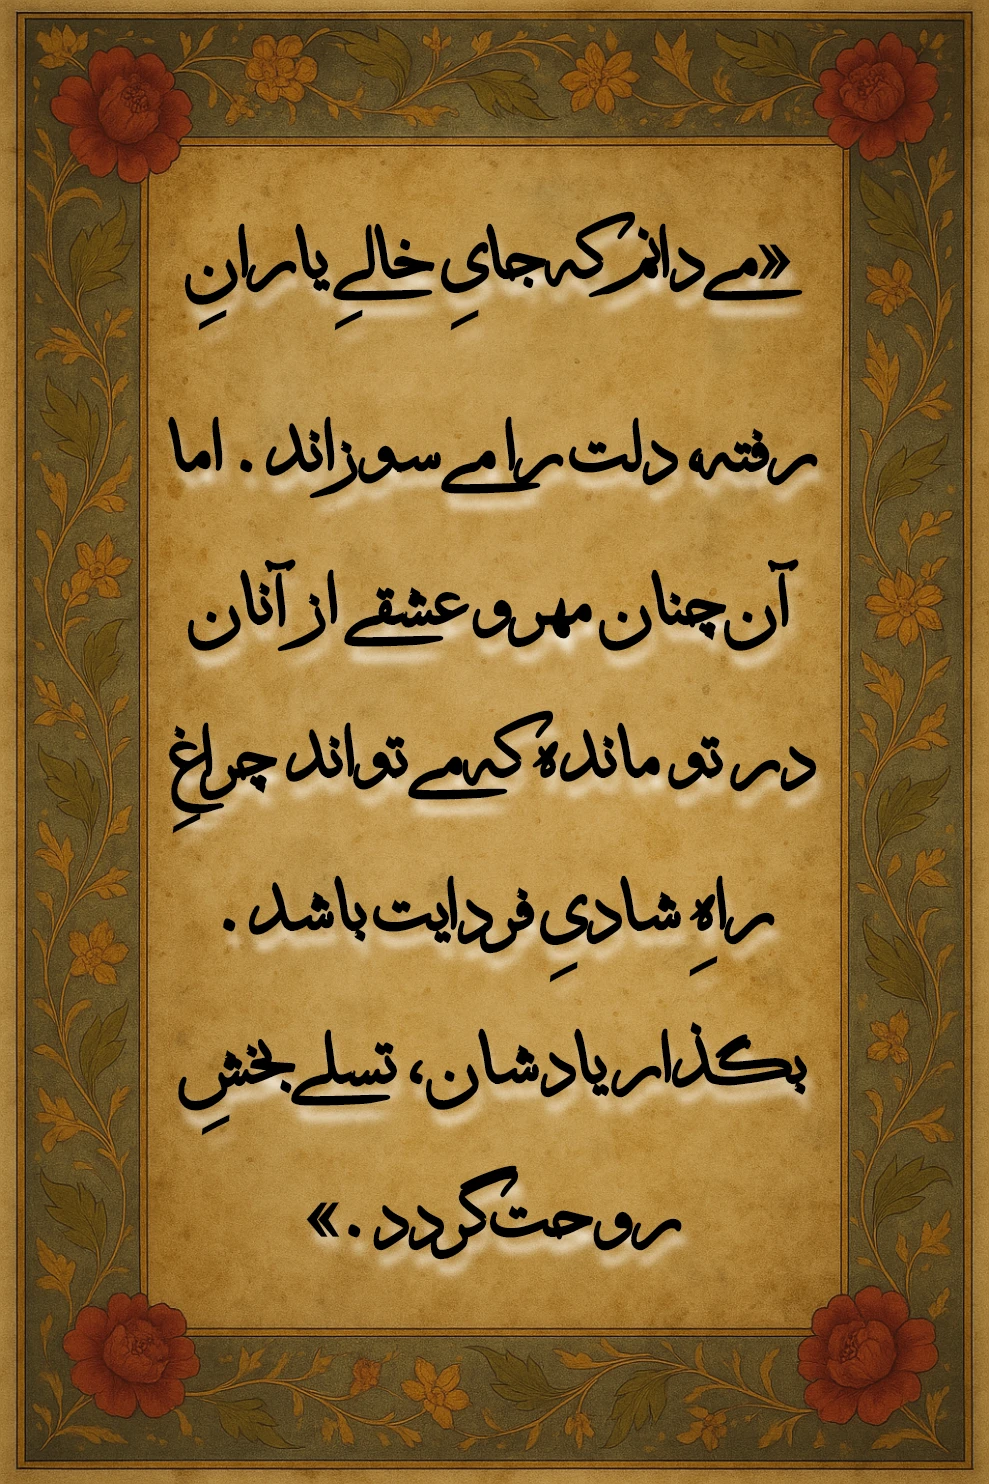 «می‌دانم که جایِ خالیِ یارانِ
رفته، دلت را می‌سوزاند . اما
آن چنان مهر و عشقی از آنان
در تو مانده که می‌تواند چراغِ
راهِ شادیِ فردایت باشد .
بگذار یادشان، تسلی‌بخشِ
روحت گردد .»